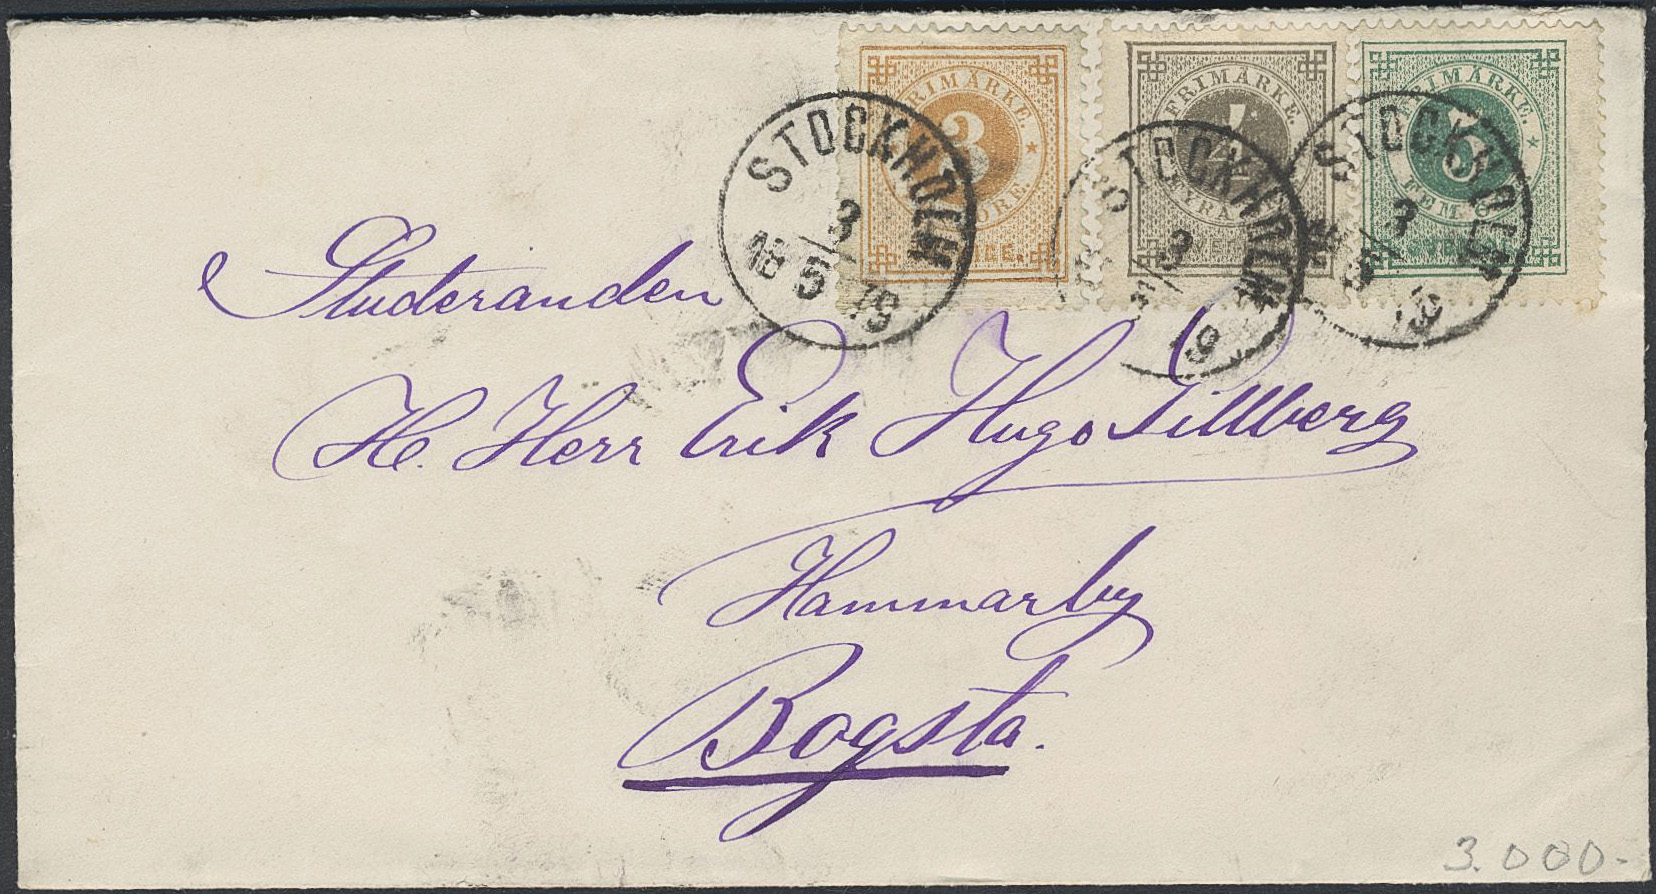 FRIMÄRKE.
3
FRIMÄRKE.
4
FYRA
FRIMÄRKE.
5
FEM
STOCKHOLM
3
5
18 79
STOCKHOLM
3
STOCKHOLM
3
Studeranden
H. Herr Erik Hugo Pillberg
Hammarby
Bogsta.
3.000-